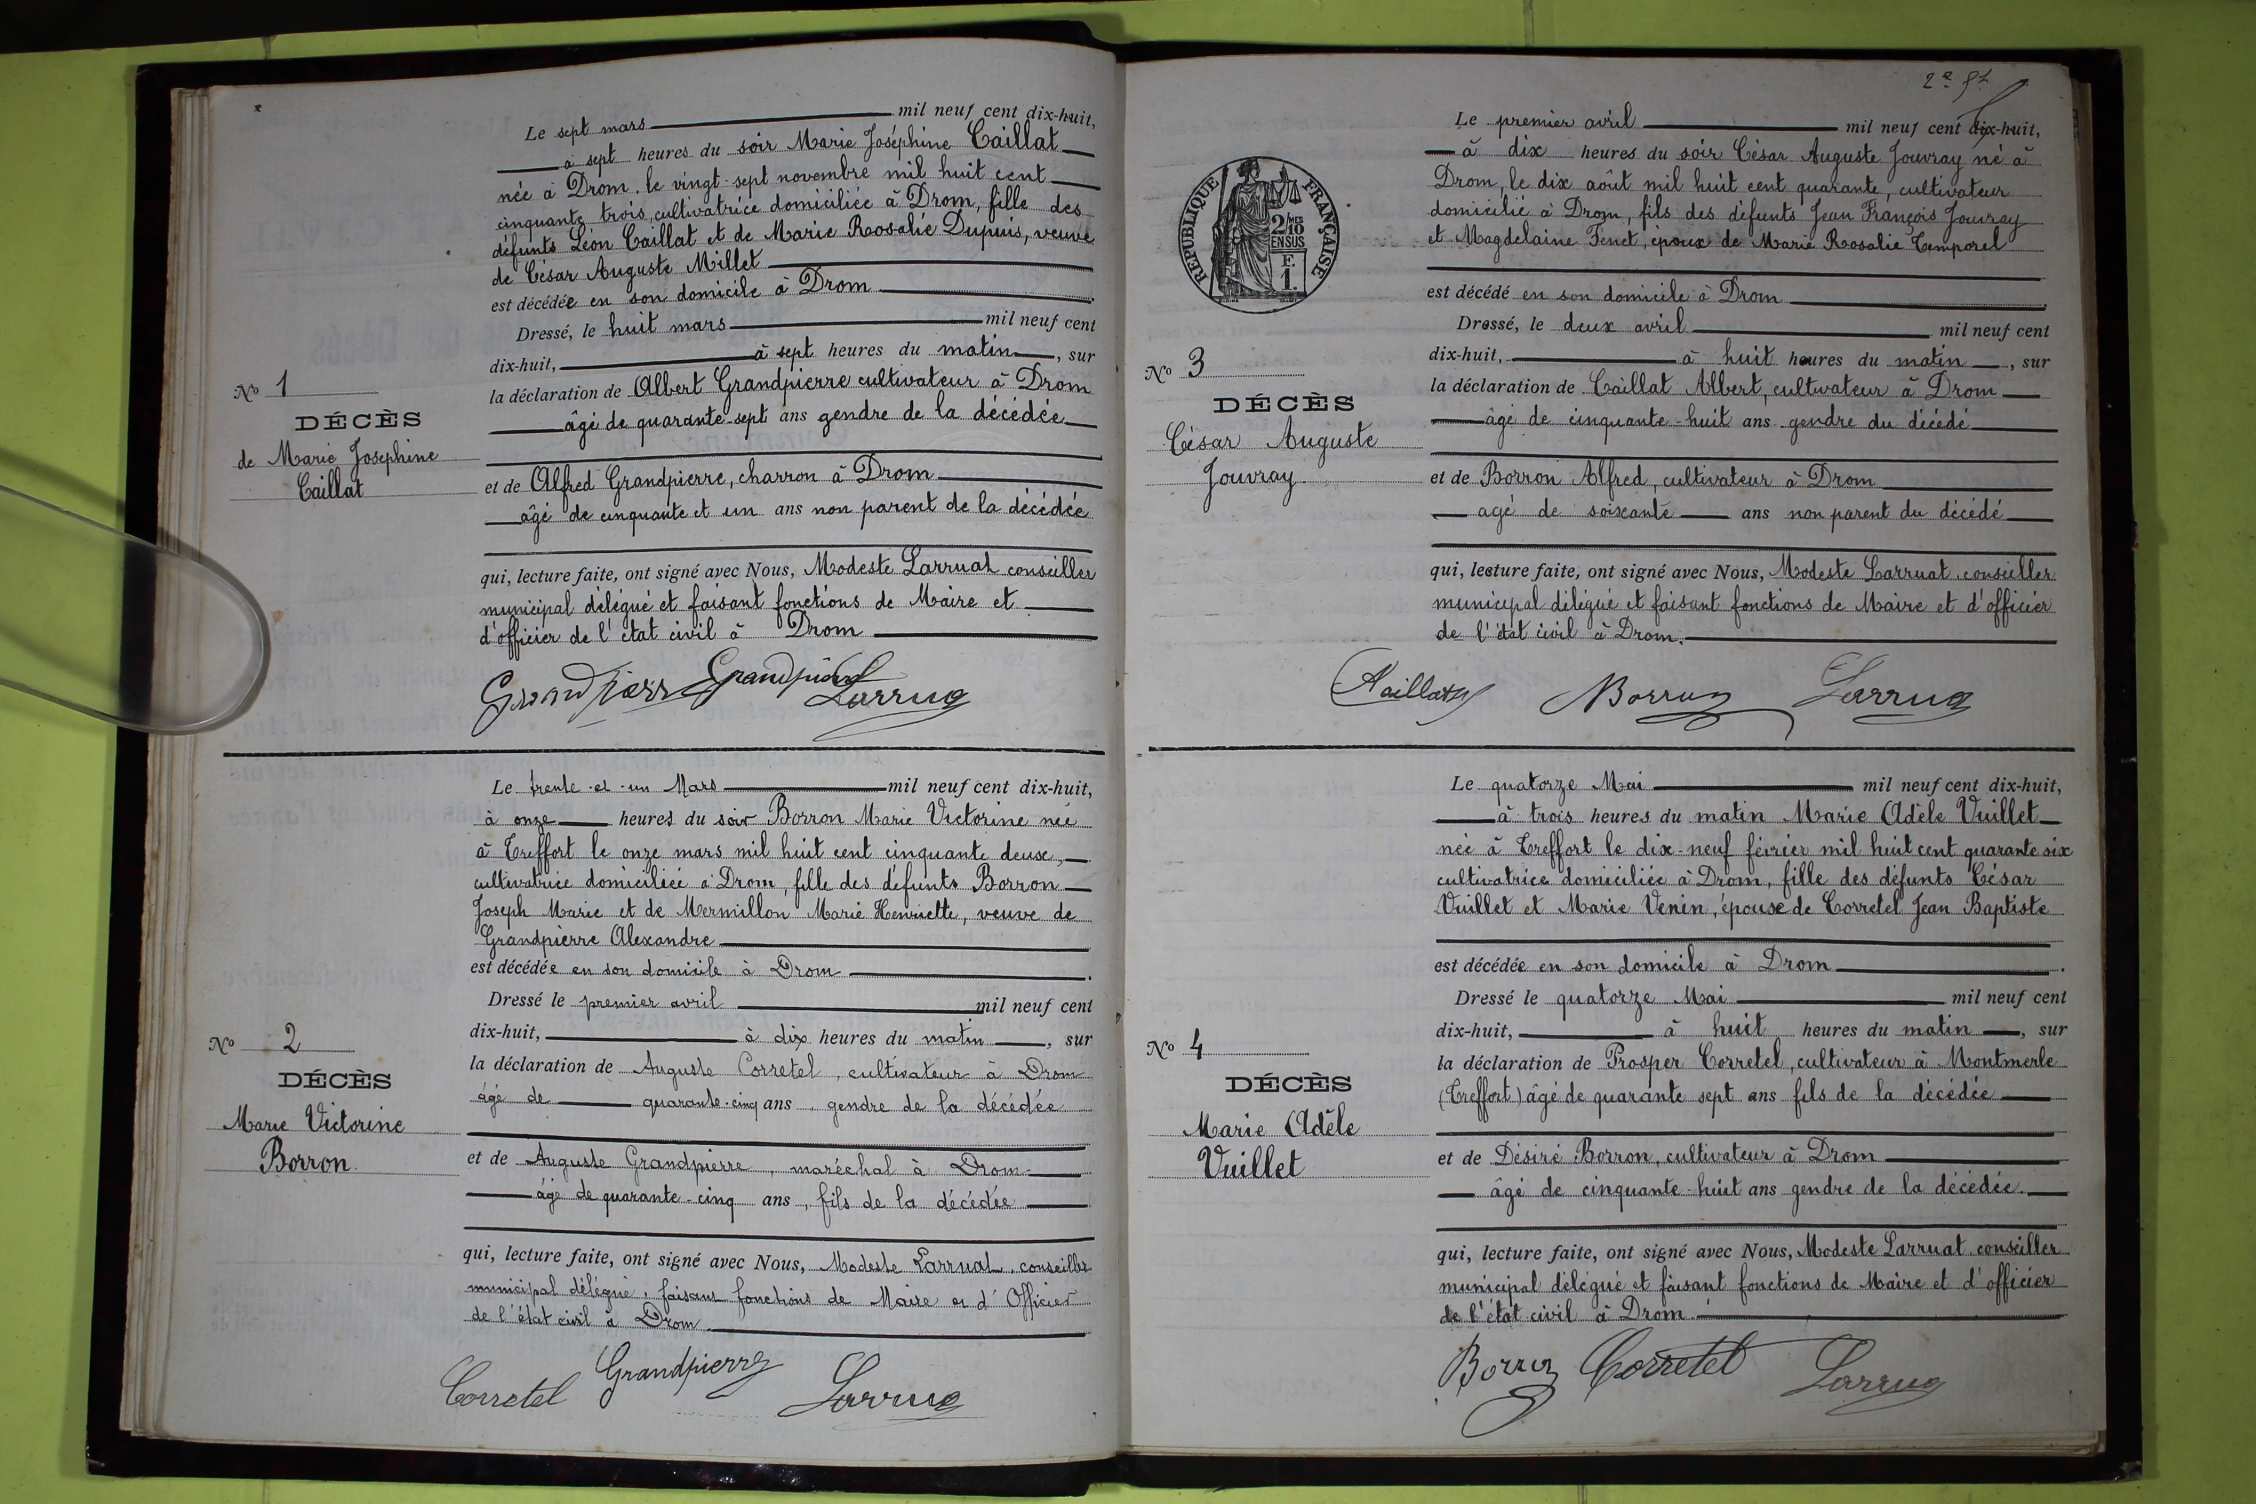 Le sept mars mil neuf cent dix-huit,
à sept heures du soir Marie Joséphine Caillat
née à Drom, le vingt-sept novembre mil huit cent
cinquante trois, cultivatrice domiciliée à Drom, fille des
défunts Léon Caillat et de Marie Rosalie Dupuis, veuve
de César Auguste Millet
est décédée en son domicile à Drom
Dressé, le huit mars mil neuf cent
dix-huit, à sept heures du matin, sur
la déclaration de Albert Grandpierre cultivateur à Drom
âgé de quarante-sept ans gendre de la décédée
et de Alfred Grandpierre, charron à Drom
âgé de cinquante et un ans non parent de la décédée
qui, lecture faite, ont signé avec Nous, Modeste Larruat conseiller
municipal délégué et faisant fonctions de Maire et
d'officier de l'état civil à Drom
Grandpierre Grandpierre Larrua
No 1
DÉCÈS
de Marie Josephine
Caillat
Le trente-et-un Mars mil neuf cent dix-huit,
à onze heures du soir Borron Marie Victorine née
à Treffort le onze mars mil huit cent cinquante deux,
cultivatrice domiciliée à Drom, fille des défunts Borron
Joseph Marie et de Mermillon Marie Henriette, veuve de
Grandpierre Alexandre
est décédée en son domicile à Drom.
Dressé le premier avril mil neuf cent
dix-huit, à dix heures du matin, sur
la déclaration de Auguste Corretel, cultivateur à Drom
âgé de quarante-cinq ans, gendre de la décédée
et de Auguste Grandpierre, maréchal à Drom
âgé de quarante-cinq ans, fils de la décédée
qui, lecture faite, ont signé avec Nous, Modeste Larruat, conseiller
municipal délégué, faisant fonctions de Maire et d'Officier
de l'état civil à Drom
Corretel Grandpierre Larrua
No 2
DÉCÈS
Marie Victorine
Borron
2e ft
Le premier avril mil neuf cent dix-huit,
à dix heures du soir César Auguste Jouvray né à
Drom, le dix août mil huit cent quarante, cultivateur
domicilié à Drom, fils des défunts Jean François Jouvray
et Magdelaine Fenet, époux de Marie Rosalie Temporel
est décédé en son domicile à Drom
Dressé, le deux avril mil neuf cent
dix-huit, à huit heures du matin, sur
la déclaration de Caillat Albert, cultivateur à Drom
âgé de cinquante-huit ans gendre du décédé
et de Borron Alfred, cultivateur à Drom
agé de soixante ans non parent du décédé
qui, lecture faite, ont signé avec Nous, Modeste Larruat, conseiller
municipal délégué et faisant fonctions de Maire et d'officier
de l'état civil à Drom.
ACaillat Borron Larrua
RÉPUBLIQUE FRANÇAISE
2/10 MES
EN SUS
F.
1.
No 3
DÉCÈS
César Auguste
Jouvray
Le quatorze Mai mil neuf cent dix-huit,
à trois heures du matin Marie Adèle Vuillet
née à Treffort le dix-neuf février mil huit cent quarante six
cultivatrice domiciliée à Drom, fille des défunts César
Vuillet et Marie Venin, épouse de Corretel Jean Baptiste
est décédée en son domicile à Drom.
Dressé le quatorze Mai mil neuf cent
dix-huit, à huit heures du matin, sur
la déclaration de Prosper Corretel, cultivateur à Montmerle
(Treffort) âgé de quarante sept ans fils de la décédée
et de Désiré Borron, cultivateur à Drom
âgé de cinquante-huit ans gendre de la décédée.
qui, lecture faite, ont signé avec Nous, Modeste Larruat, conseiller
municipal délégué et faisant fonctions de Maire et d'officier
de l'état civil à Drom.
Borron Corretel Larrua
No 4
DÉCÈS
Marie Adèle
Vuillet